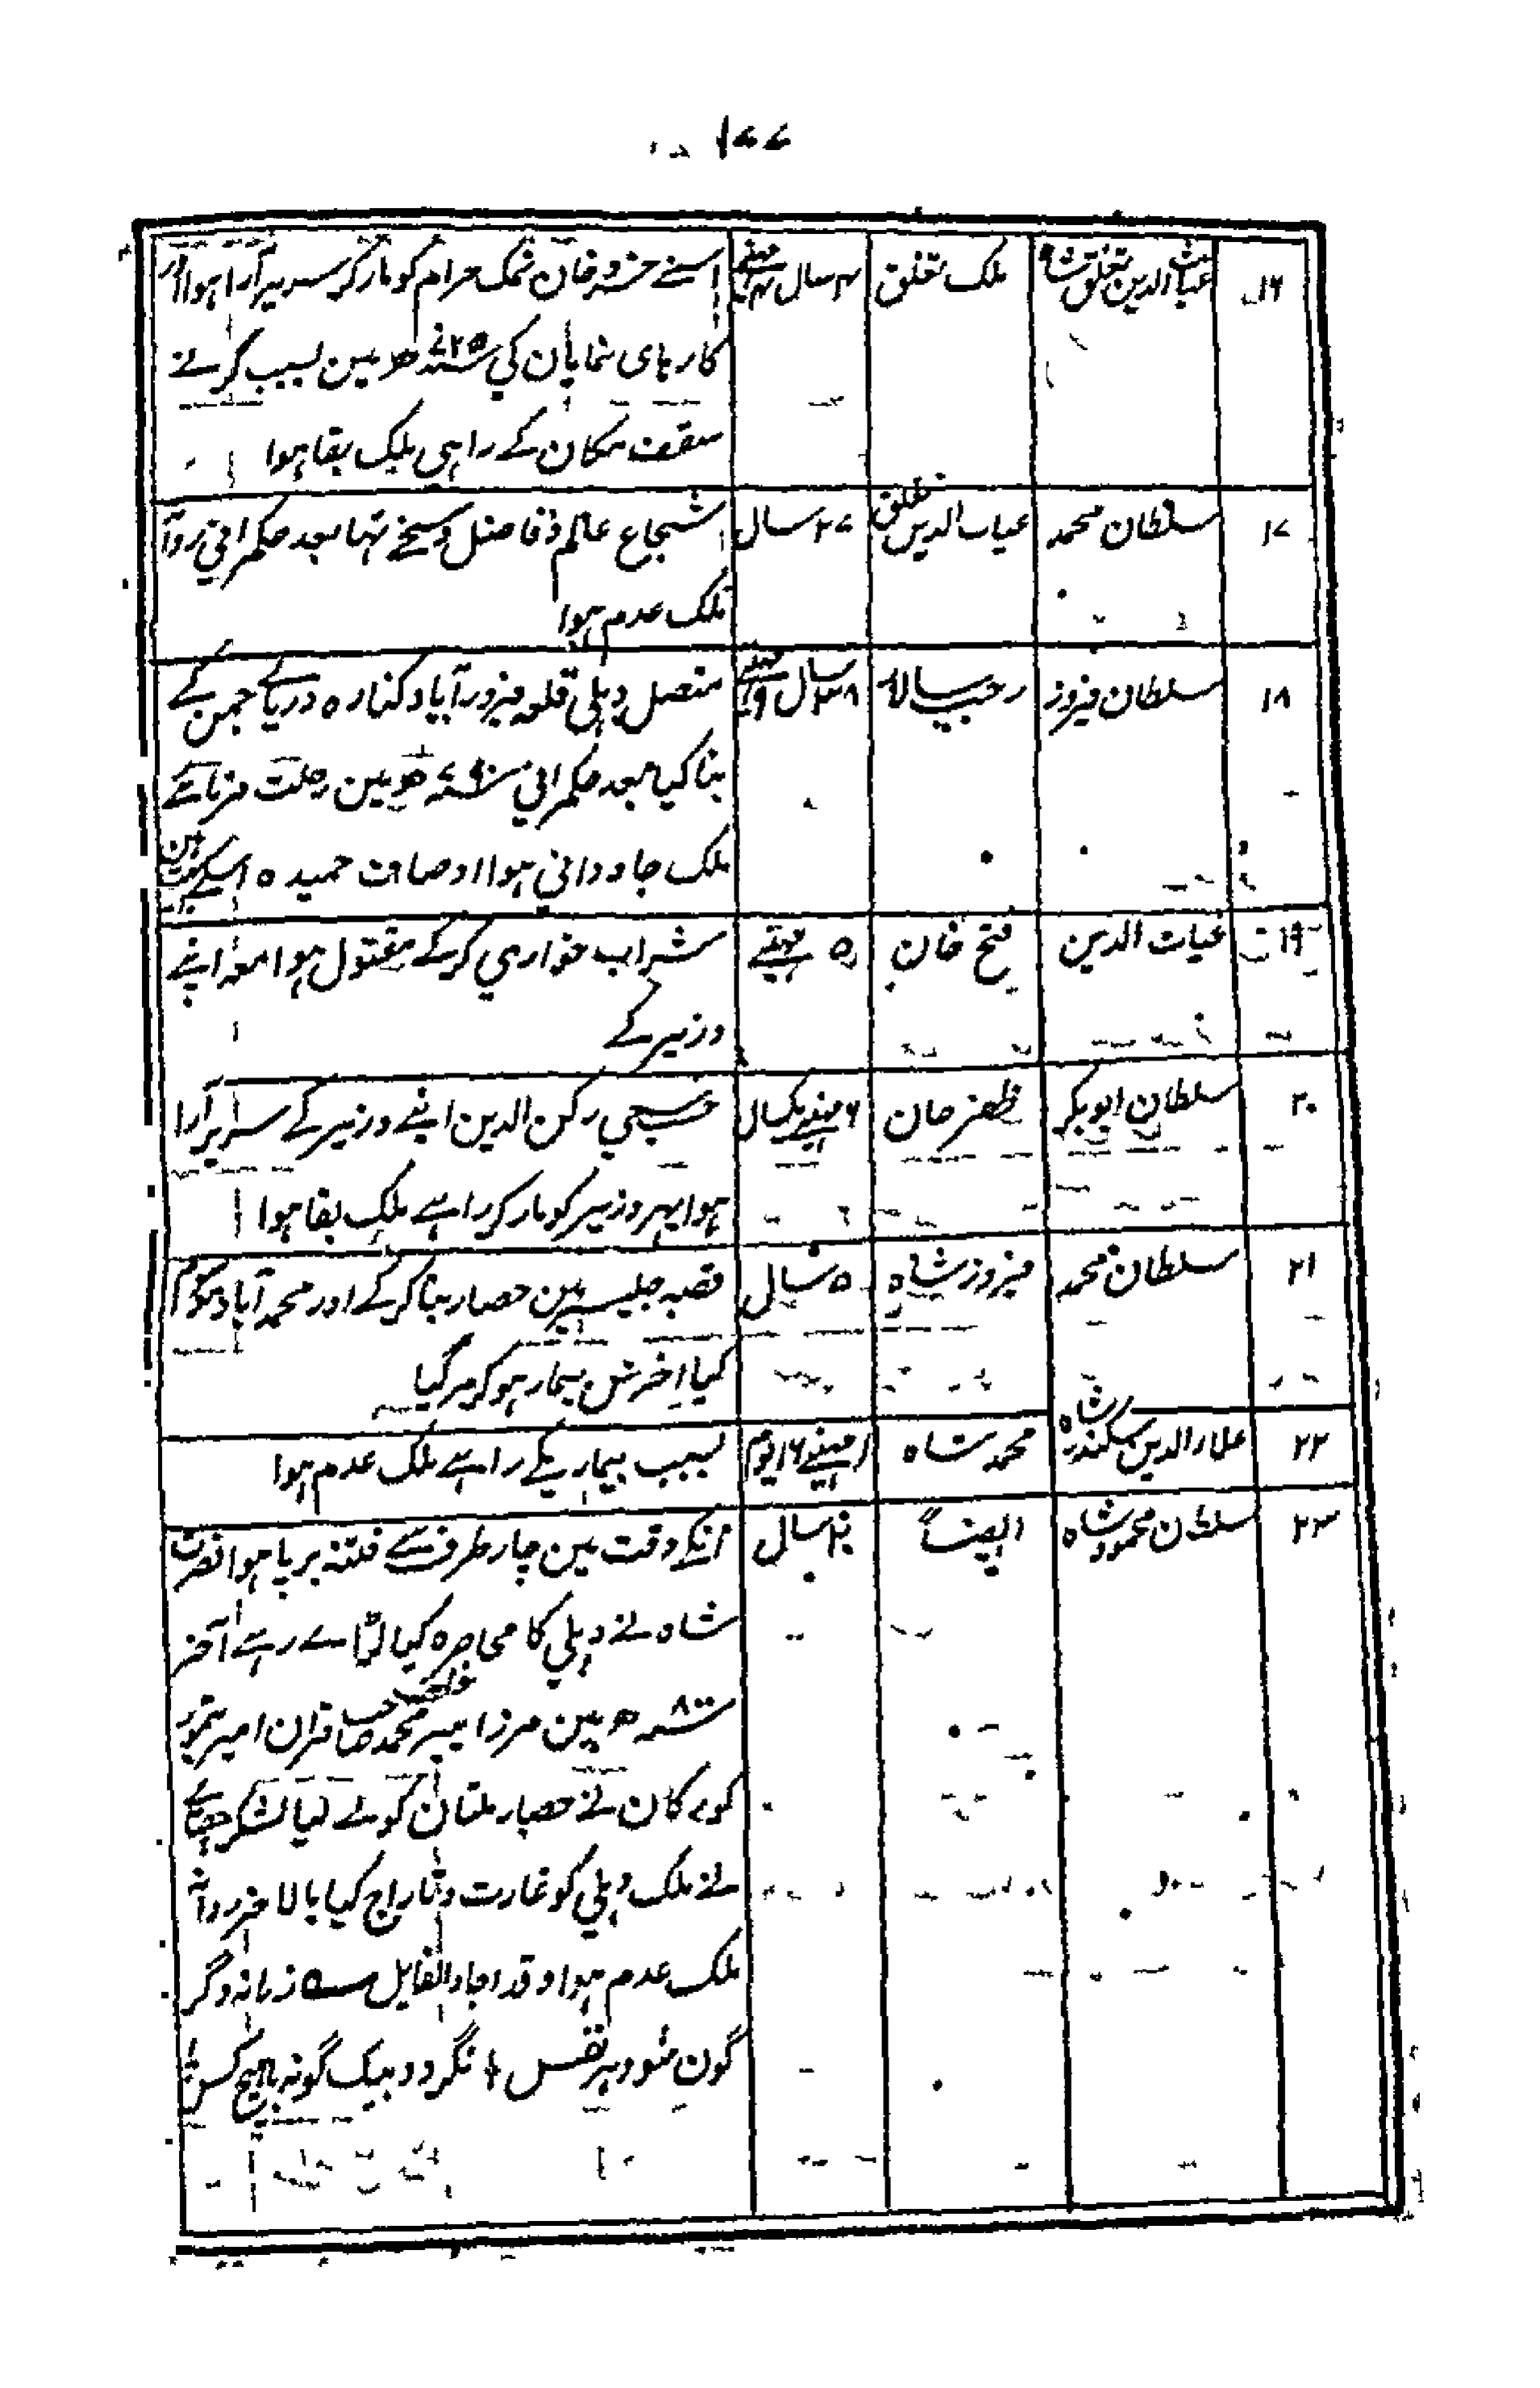 ۱۷۷
۱۶ غیاث الدین تغلق شاہ ملک تغلق ۴ سال ۴ مہینے اسنے خسرو خان نمک حرام کو مار کر سریر آرا ہوا اور
کارہای نمایان کی ۷۲۵ سنہ ھ مین بسبب گرنے
سقف مکان کے راہی ملک بقا ہوا
۱۷ سلطان محمد غیاب الدین تغلق ۲۷ سال شجاع عالم و فاضل و سخی تہا بعد حکمرانی روانہ
ملک عدم ہوا
۱۸ سلطان فیروز رجب سالار ۳۸ سال ۹ مہینے متصل دہلی قلعہ فیروز آباد کنارہ دریاے جمن کے
بنا کیا بعد حکمرانی سنہ ۷۹۰ ھ مین رحلت فرمائے
ملک جاودانی ہوا اوصاف حمیدہ اسکے بہت ہین
۱۹ غیاث الدین فتح خان ۵ مہینے شراب خواری کرکے مقتول ہوا معہ اپنے
وزیر کے
۲۰ سلطان ابوبکر ظفر خان ۶ مہینے یکسال حسب رکن الدین اپنے وزیر کے سریر آرا
ہوا پہر وزیر کو مار کر راہے ملک بقا ہوا
۲۱ سلطان محمد فیروز شاہ ۵ سال قصبہ جلیسر مین حصار بنا کرکے اور محمد آباد موسوم
کیا اخرش بیمار ہو کر مر گیا
۲۲ علاء الدین سکندر شاہ محمد شاہ ۱ مہینے ۱۶ یوم بسبب بیماریکے راہے ملک عدم ہوا
۲۳ سلطان محمود شاہ ایضاً ۲۰ سال انکے وقت مین چار طرف سے فتنہ برپا ہوا نصرت
شاہ نے دہلی کا محاصرہ کیا لڑاے رہے آخر
سنہ ۸۰۰ ھ مین مرزا پیر محمد خلف صاحب قران امیر تیمور
کورکان نے حصار ملتان کو لے لیا لشکر چغتاے
نے ملک دہلی کو غارت و تاراج کیا بالاخر روانہ
ملک عدم ہوا و قد اجاد القایل ؎ زمانہ دگر
گون شود ہر نفس ۔ نگردد بیک گونہ با ہیچ کس